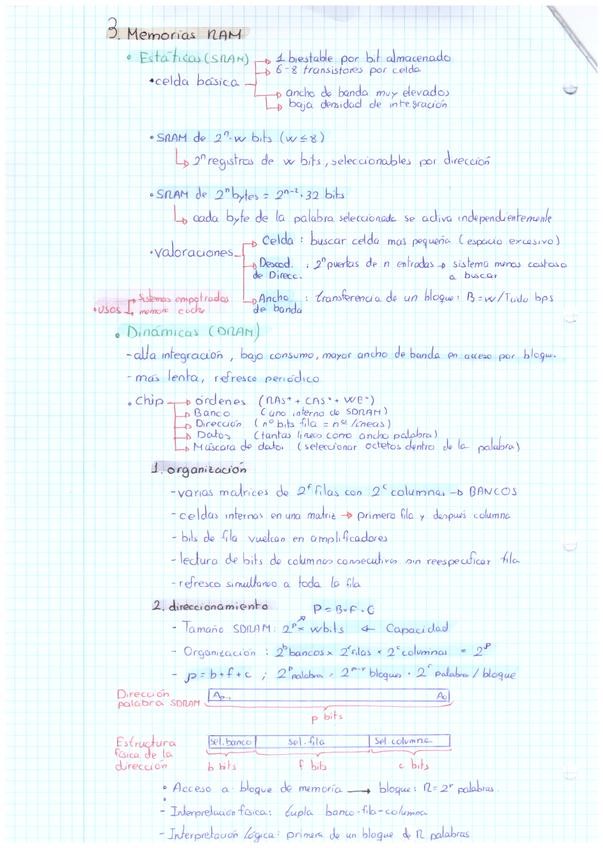 3. Memorias RAM
• Estáticas (SRAM)
1 biestable por bit almacenado
6-8 transistores por celda
• celda básica
ancho de banda muy elevados
baja densidad de integración
• SRAM de 2ⁿ·w bits (w ≤ 8)
2ⁿ registros de w bits, seleccionables por dirección
• SRAM de 2ⁿ bytes = 2ⁿ⁻²·32 bits
cada byte de la palabra seleccionada se activa independientemente
• valoraciones
Celda : buscar celda mas pequeña (espacio excesivo)
Descod. de Direcc. : 2ⁿ puertas de n entradas → sistema menos costoso a buscar
Ancho de banda : transferencia de un bloque: B = w/Tcudo bps
• usos
Sistemas empotrados
memoria cache
• Dinámicas (DRAM)
- alta integración, bajo consumo, mayor ancho de banda en acceso por bloque.
- más lenta, refresco periódico
• Chip
órdenes (RAS* + CAS* + WE*)
Banco (uno interno de SDRAM)
Dirección (nº bits fila = nº líneas)
Datos (tantas lineas como ancho palabra)
Máscara de datos (seleccionar octetos dentro de la palabra)
1. organización
- varias matrices de 2ᶠ filas con 2ᶜ columnas → BANCOS
- celdas internas en una matriz → primero fila y después columna
- bits de fila vuelcan en amplificadores
- lectura de bits de columnas consecutivas sin reespecificar fila
- refresco simultaneo a toda la fila
2. direccionamiento
P = B·F·C
- Tamaño SDRAM: 2ᵖ × w bits ← Capacidad
- Organización : 2ᵇ bancos × 2ᶠ filas × 2ᶜ columnas = 2ᵖ
- p = b + f + c ; 2ᵖ palabras = 2ᵖ⁻ʳ bloques · 2ʳ palabras / bloque
Dirección palabra SDRAM
Aₚ₋₁ A₀
p bits
Estructura física de la dirección
sel. banco sel. fila sel. columna
b bits f bits c bits
• Acceso a bloque de memoria → bloque: R = 2ʳ palabras.
- Interpretación física: tupla banco-fila-columna
- Interpretación lógica: primera de un bloque de R palabras